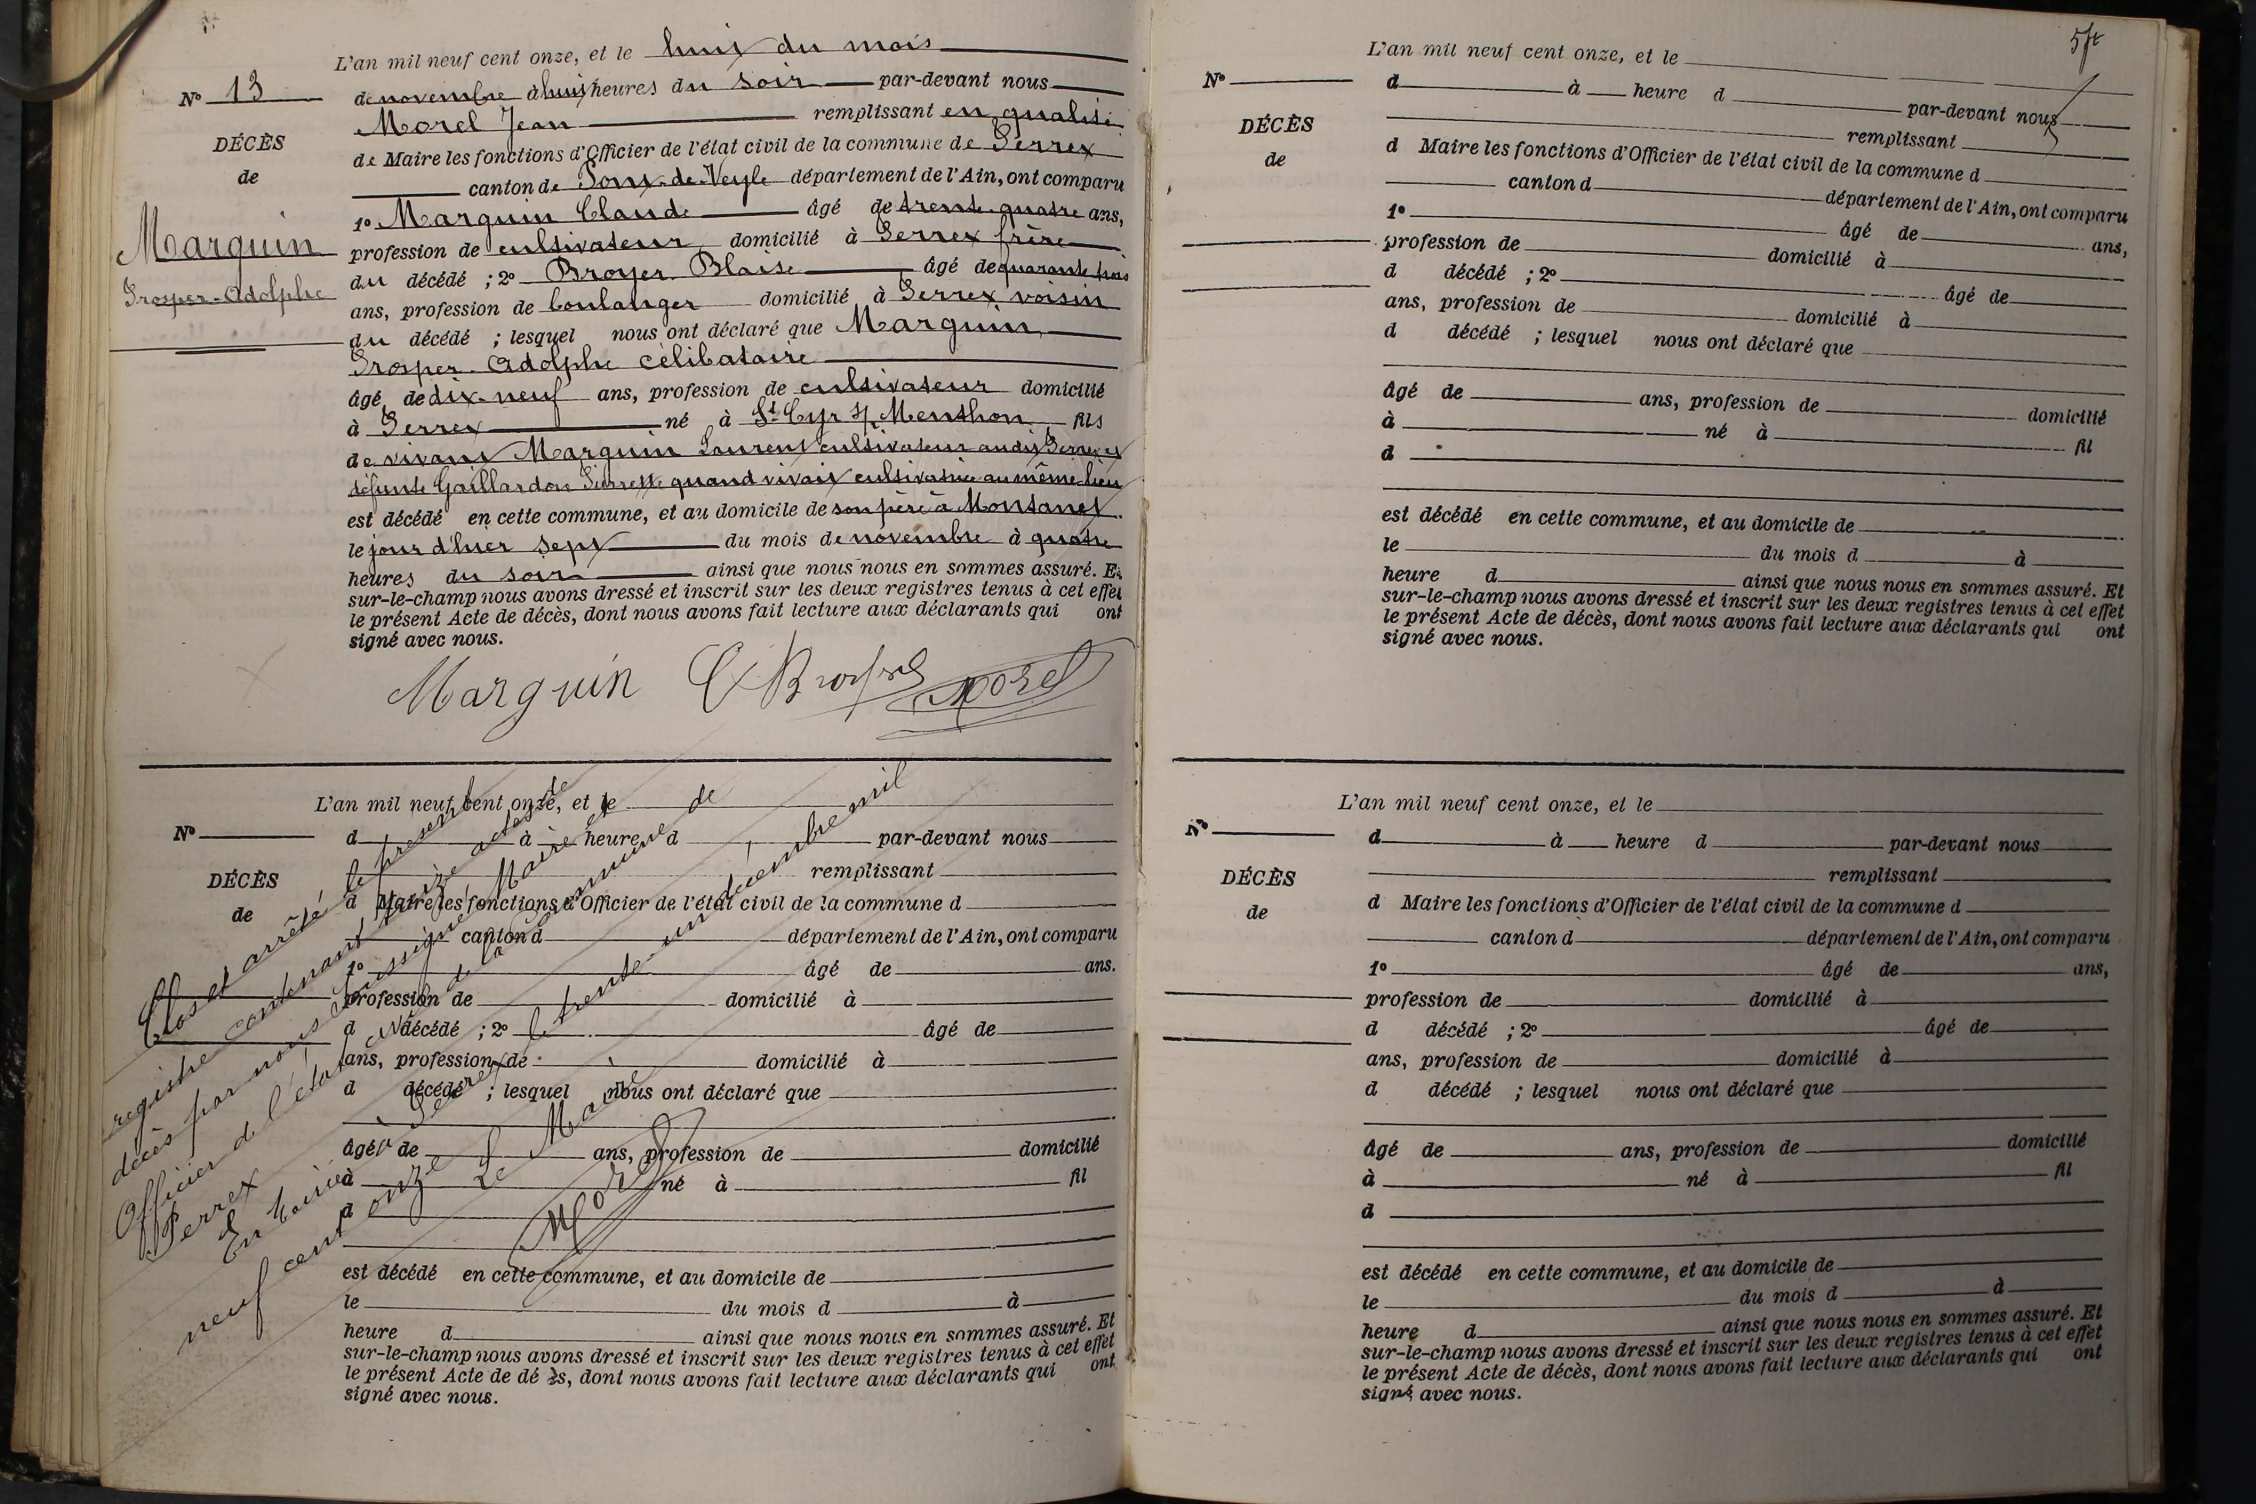 L'an mil neuf cent onze, et le huit du mois
No 13
de novembre à huit heures du soir par-devant nous
Morel Jean remplissant en qualité
DÉCÈS
de Maire les fonctions d'Officier de l'état civil de la commune de Perrex
de
canton de Pont-de-Veyle département de l'Ain, ont comparu
1o Marguin Claude âgé de trente-quatre ans,
Marguin
profession de cultivateur domicilié à Perrex frère
Prosper-Adolphe
du décédé ; 2o Broyer Blaise âgé de quarante trois
ans, profession de boulanger domicilié à Perrex voisin
du décédé ; lesquel nous ont déclaré que Marguin
Prosper-Adolphe célibataire
âgé de dix-neuf ans, profession de cultivateur domicilié
à Perrex né à St Cyr s/ Menthon fils
de vivant Marguin Laurent cultivateur audit Perrex et
défunte Gaillardon Pierrette quand vivait cultivatrice au même lieu
est décédé en cette commune, et au domicile de son père à Montanet
le jour d'hier sept du mois de novembre à quatre
heures du soir ainsi que nous nous en sommes assuré. Et
sur-le-champ nous avons dressé et inscrit sur les deux registres tenus à cet effet
le présent Acte de décès, dont nous avons fait lecture aux déclarants qui ont
signé avec nous.
Marguin C Broyer Morel
L'an mil neuf cent onze, et le
No
d à heure d par-devant nous
remplissant
DÉCÈS
d Maire les fonctions d'Officier de l'état civil de la commune d
de
canton d département de l'Ain, ont comparu
1o âgé de ans.
profession de domicilié à
d décédé ; 2o âgé de
ans, profession de domicilié à
d décédé ; lesquel nous ont déclaré que
âgé de ans, profession de domicilié
à né à fil
d
est décédé en cette commune, et au domicile de
le du mois d à
heure d ainsi que nous nous en sommes assuré. Et
sur-le-champ nous avons dressé et inscrit sur les deux registres tenus à cet effet
le présent Acte de décès, dont nous avons fait lecture aux déclarants qui ont
signé avec nous.
Clos et arrêté le présent
registre contenant treize actes de
décès par nous soussigné Maire et
Officier de l'état civil de la commune de
Perrex
En Mairie à Perrex le trente-un décembre mil
neuf cent onze
Le Maire
Morel
L'an mil neuf cent onze, et le
No
d à heure d par-devant nous
remplissant
DÉCÈS
d Maire les fonctions d'Officier de l'état civil de la commune d
de
canton d département de l'Ain, ont comparu
1o âgé de ans,
profession de domicilié à
d décédé ; 2o âgé de
ans, profession de domicilié à
d décédé ; lesquel nous ont déclaré que
âgé de ans, profession de domicilié
à né à fil
d
est décédé en cette commune, et au domicile de
le du mois d à
heure d ainsi que nous nous en sommes assuré. Et
sur-le-champ nous avons dressé et inscrit sur les deux registres tenus à cet effet
le présent Acte de décès, dont nous avons fait lecture aux déclarants qui ont
signé avec nous.
L'an mil neuf cent onze, et le
No
d à heure d par-devant nous
remplissant
DÉCÈS
d Maire les fonctions d'Officier de l'état civil de la commune d
de
canton d département de l'Ain, ont comparu
1o âgé de ans,
profession de domicilié à
d décédé ; 2o âgé de
ans, profession de domicilié à
d décédé ; lesquel nous ont déclaré que
âgé de ans, profession de domicilié
à né à fil
d
est décédé en cette commune, et au domicile de
le du mois d à
heure d ainsi que nous nous en sommes assuré. Et
sur-le-champ nous avons dressé et inscrit sur les deux registres tenus à cet effet
le présent Acte de décès, dont nous avons fait lecture aux déclarants qui ont
signé avec nous.